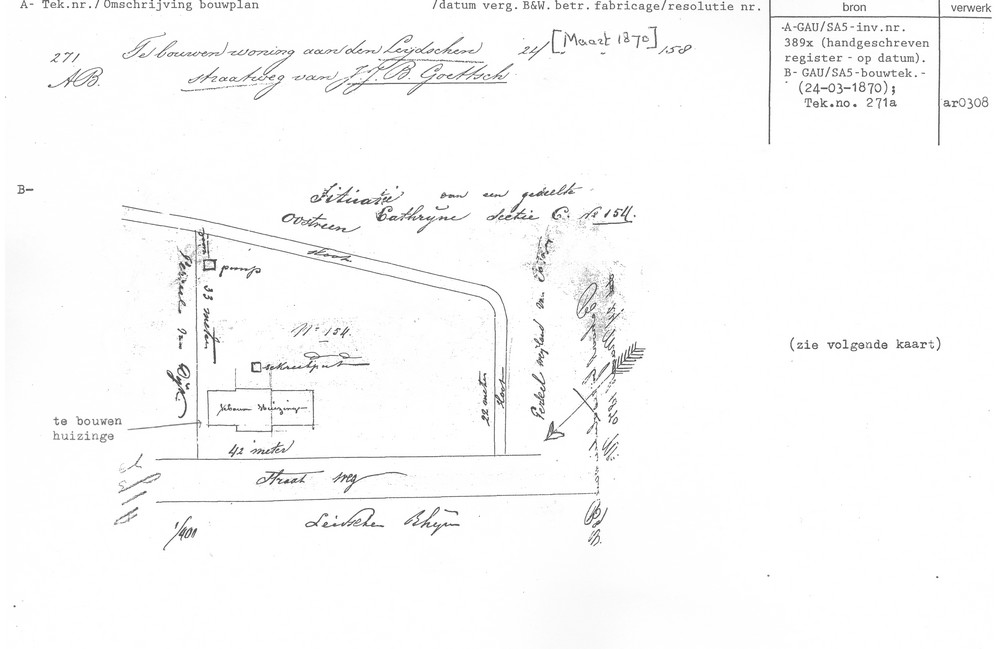 A- Tek.nr./Omschrijving bouwplan /datum verg. B&W. betr. fabricage/resolutie nr.
bron
verwerk
271 Te bouwen woning aan den Leijdschen 24/[Maart 1870] 158
AB. straatweg van J.J.B. Goettsch
A-GAU/SA5-inv.nr.
389x (handgeschreven
register - op datum).
B- GAU/SA5-bouwtek.-
(24-03-1870);
Tek.no. 271a
ar0308
B-
Situatie van een gedeelte
Oostveen Cathryne sectie C. No 154.
sloot
pomp
33 meter
Perceel van
No 154.
te bouwen
huizinge
Huizing
42 meter
22 meter
sloot
Perceel weyland van
(zie volgende kaart)
Straat weg
Leidschen Rhijn
1/400